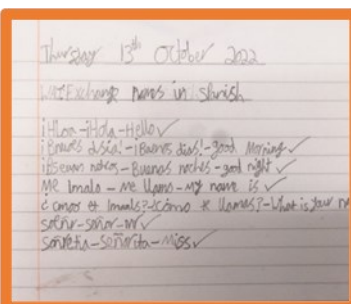 Thursday 13th October 2022
Exchange names in spanish
¡Hloa-¡Hola-Hello✓
dias!-¡Buenos dias!-good Morning✓
Buenas noches-good night✓
Me lmalo-me llamo-my name is✓
¿cmoo te lmaals?-¿cómo te llamas?-What is your
soeñr-señor-mr✓
señorita-miss✓